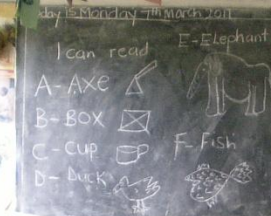 day is Monday 7th March 2011
I can read
A - Axe
B - Box
C - Cup
D - Duck
E - Elephant
F - Fish